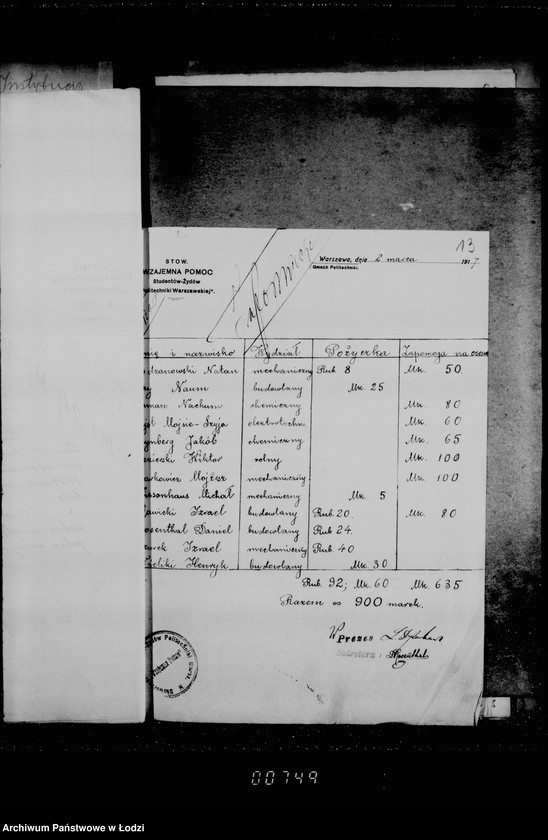 Instytucja
13
STOW.
WZAJEMNA POMOC
Studentów-Żydów
Politechniki Warszawskiej".
Warszawa, dnia 2 marca 1917.
Gmach Politechniki.
mię i nazwisko Wydział Pożyczka Zapomoga na czas
drzanowski Natan mechaniczny Rub. 8 Mk. 50.
Naum budowlany Mk. 25
man Nachum chemiczny Mk. 80
Mojsie-Szyja elektrotechn. Mk. 60
ynberg Jakób chemiczny Mk. 65
zierski Wiktor rolny Mk. 100
arkowicz Mojżesz mechaniczny Mk. 100
ssonhaus Michał mechaniczny Mk. 5
awicki Izrael budowlany Rub. 20. Mk. 80
osenthal Daniel budowlany Rub. 24.
zarek Izrael mechaniczny Rub. 40
Henryk budowlany Mk. 30
Rub. 92; Mk. 60 Mk. 635
Razem ∞ 900 marek.
Prezes
Sekretarz
00749
Archiwum Państwowe w Łodzi